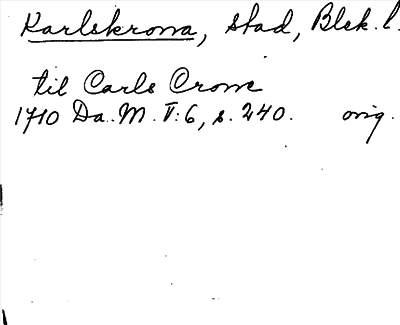 Karlskrona, stad, Blek. l.
til Carls Crone
1710 Da. M. V: 6, s. 240. orig.